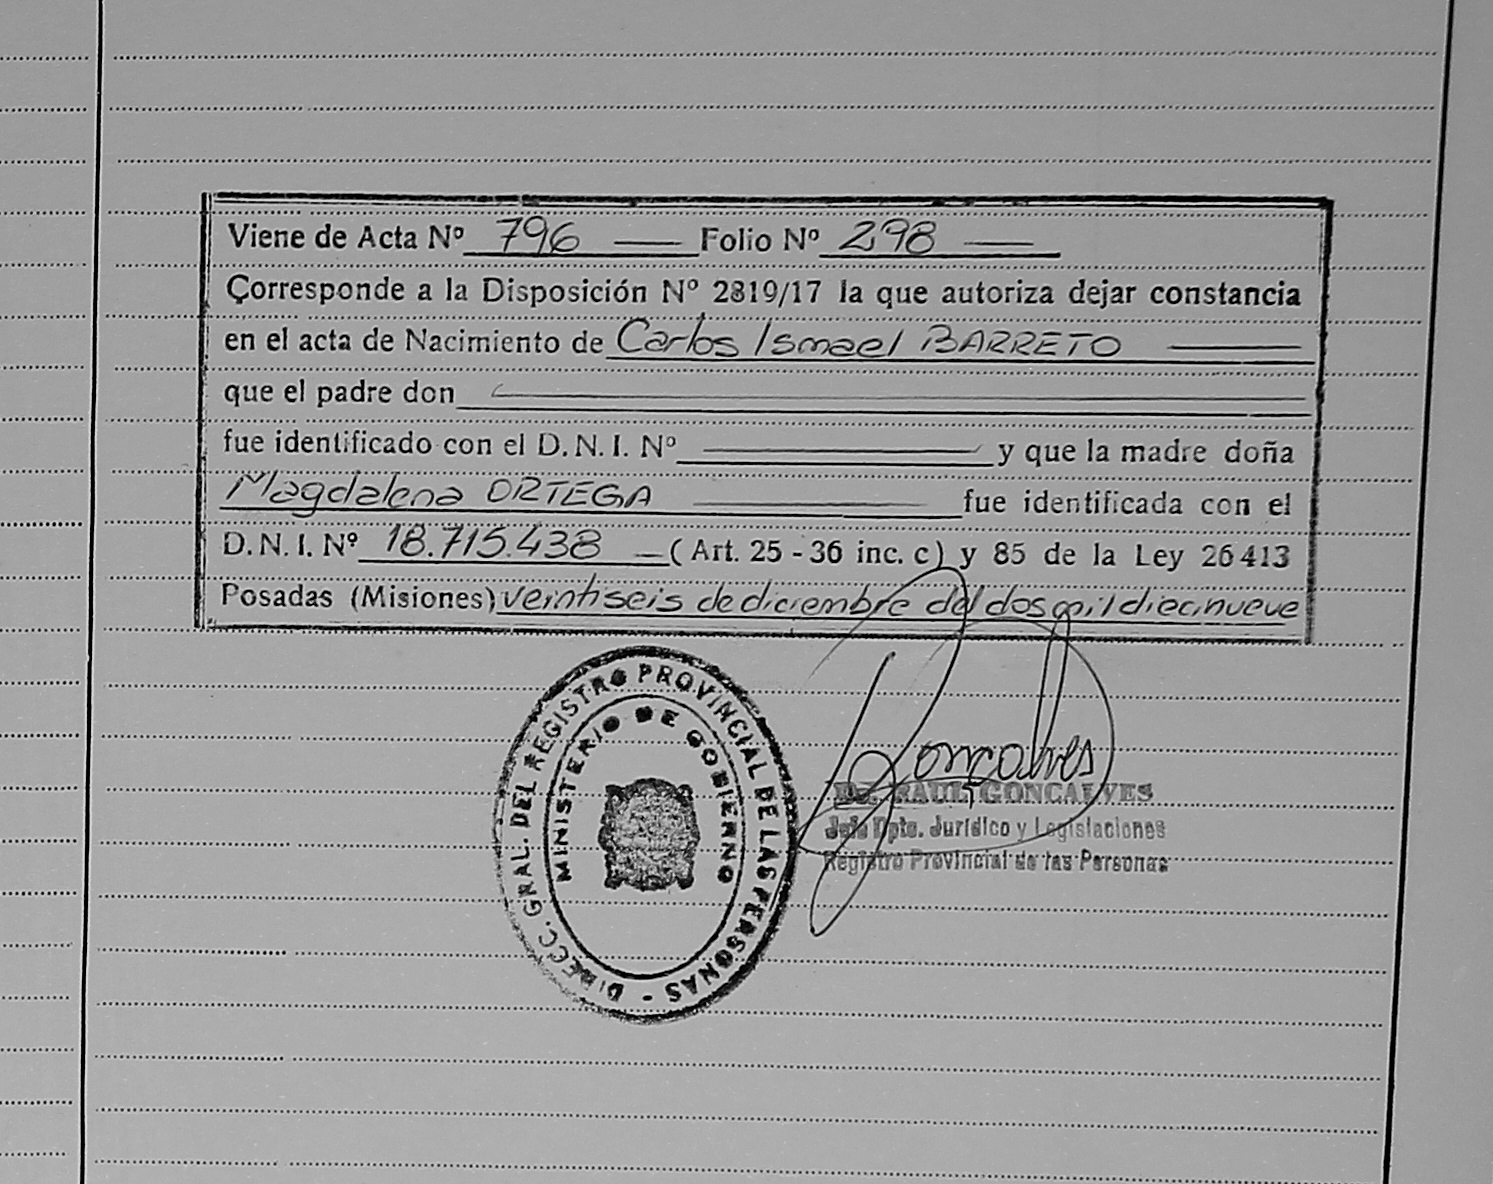 Viene de Acta Nº 796 — Folio Nº 298 —
Corresponde a la Disposición Nº 2819/17 la que autoriza dejar constancia
en el acta de Nacimiento de Carlos Ismael BARRETO —
que el padre don —
fue identificado con el D.N.I. Nº — y que la madre doña
Magdalena ORTEGA — fue identificada con el
D.N.I. Nº 18.715.438 — ( Art. 25 - 36 inc. c) y 85 de la Ley 26413
Posadas (Misiones) veintiseis de diciembre del dos mil diecinueve
DIRECC. GRAL. DEL REGISTRO PROVINCIAL DE LAS PERSONAS -
MINISTERIO DE GOBIERNO
Goncalves
Dr. RAUL GONCALVES
Jefe Dpto. Jurídico y Legislaciones
Registro Provincial de las Personas